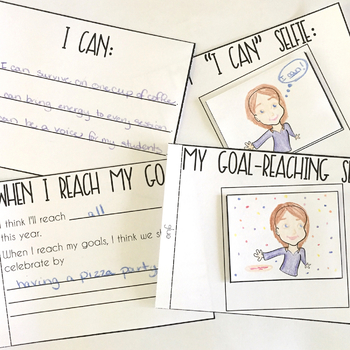 I CAN:
I can survive on one cup of coffee.
I can bring energy to every session
I can be a voice for my students
"I CAN" SELFIE:
I can!
WHEN I REACH MY GO
think I'll reach all
this year.
When I reach my goals, I think we s
celebrate by
having a pizza party
MY GOAL-REACHING S